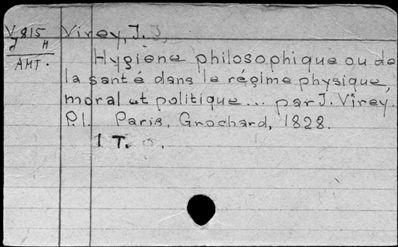 V815 Virey, J. J,
d H
AHT. Hygiene philosophique ou de
la santé dans le régime physique,
moral et politique... par J. Virey.
P. I. Paris, Crochard, 1828.
1 T.